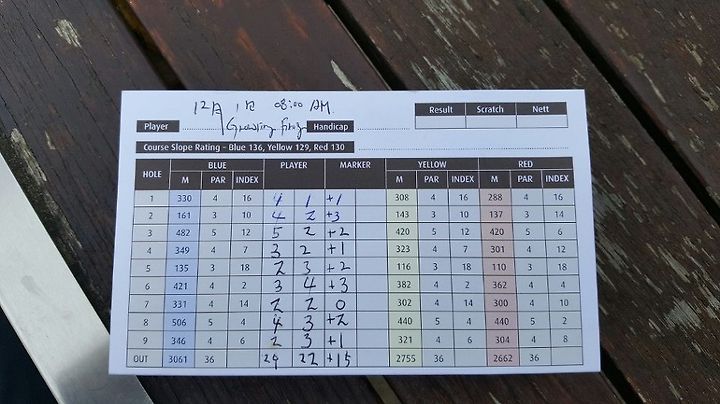 12月 1日 08:00 AM
Player Growling Frog Handicap
Result Scratch Nett
Course Slope Rating - Blue 136, Yellow 129, Red 130
HOLE BLUE PLAYER MARKER YELLOW RED
M PAR INDEX M PAR INDEX M PAR INDEX
1 330 4 16 4 1 +1 308 4 16 288 4 16
2 161 3 10 4 2 +3 143 3 10 137 3 14
3 482 5 12 5 2 +2 420 5 12 420 5 6
4 349 4 7 3 2 +1 323 4 7 301 4 12
5 135 3 18 2 3 +2 116 3 18 110 3 18
6 421 4 2 3 4 +3 382 4 2 362 4 4
7 331 4 14 2 2 0 302 4 14 300 4 10
8 506 5 4 4 3 +2 440 5 4 440 5 2
9 346 4 6 2 3 +1 321 4 6 304 4 8
OUT 3061 36 29 22 +15 2755 36 2662 36